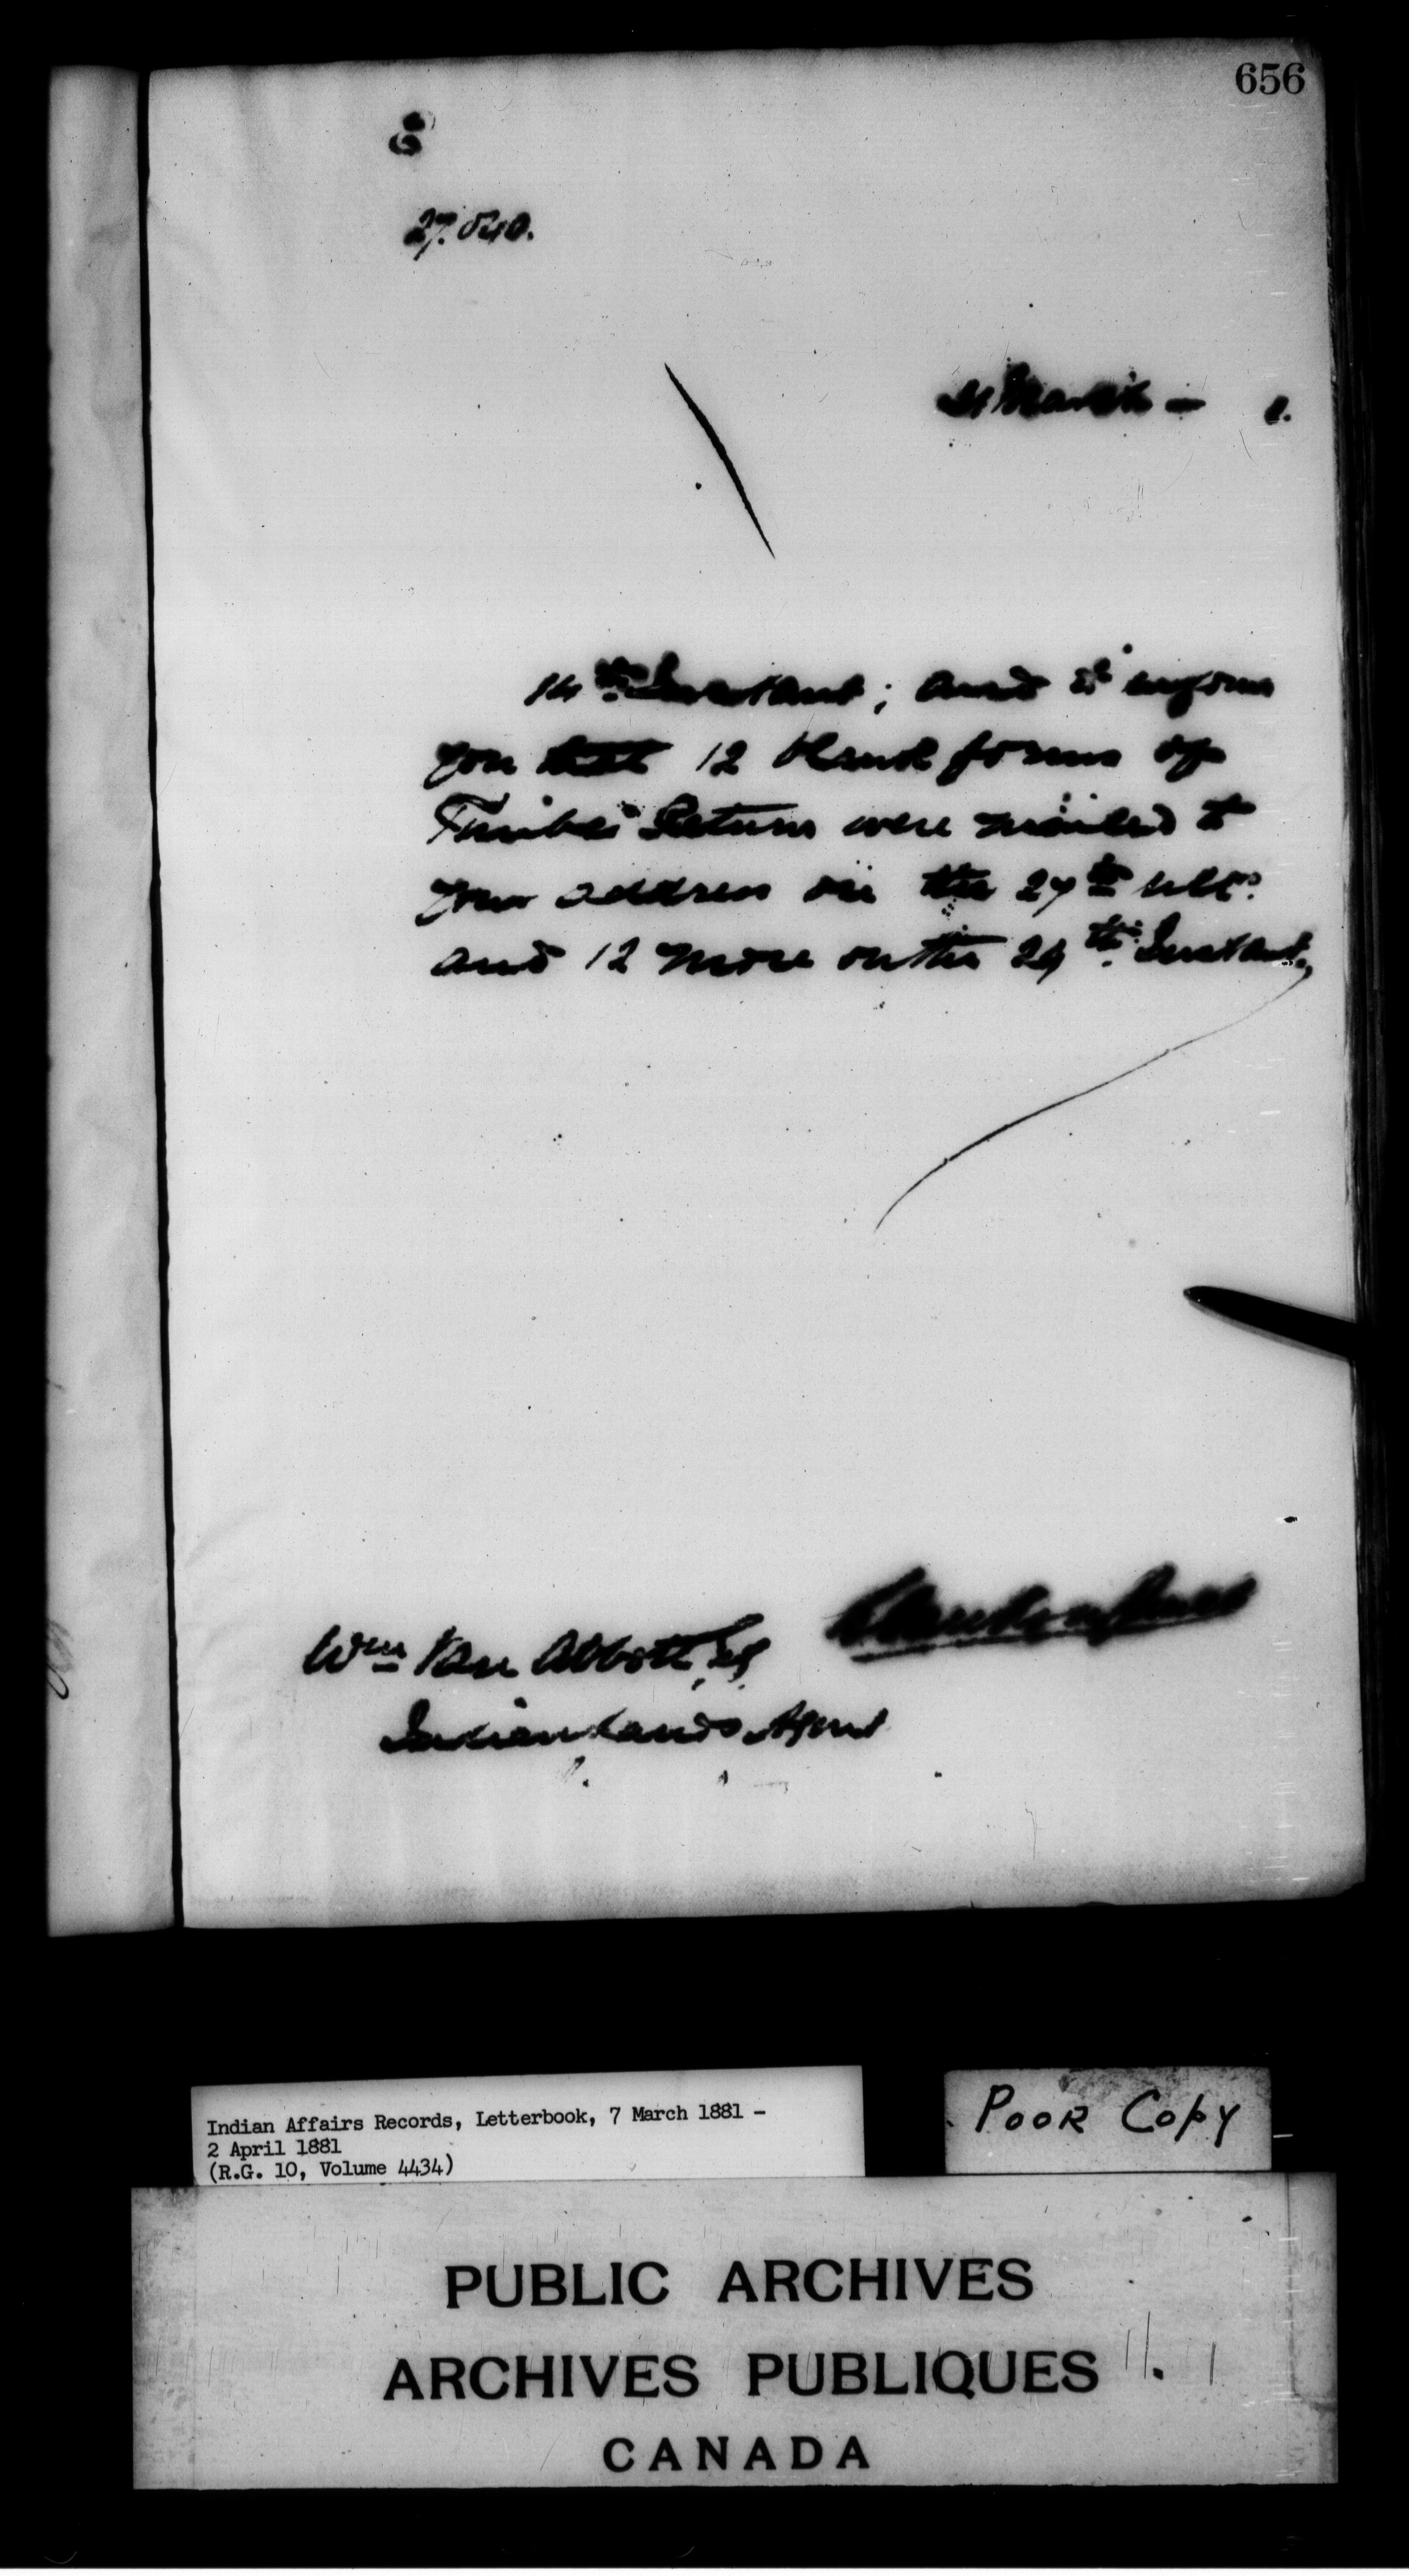 656
27.540.
31 March – 1.
14th Instant; and to inform
you that 12 blank forms of
Timber Return were mailed to
your address on the 27th ulto.
and 12 more on the 29th Instant.
Wm Van Abbott, Esq.
Indian Lands Agent
Indian Affairs Records, Letterbook, 7 March 1881 –
2 April 1881
(R.G. 10, Volume 4434)
POOR COPY
PUBLIC ARCHIVES
ARCHIVES PUBLIQUES
CANADA